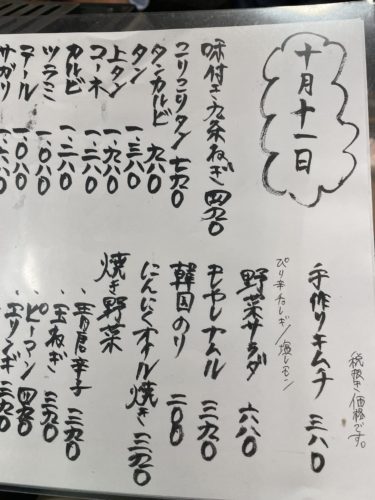 十月十一日
味付き九条ねぎ 四九〇
コリコリタン 七九〇
タンカルビ 九八〇
タン 一、三八〇
上タン 一、九八〇
一、二八〇
カルビ 一、二八〇
ツラミ 一、〇八〇
テール 一、〇八〇
サガリ 一、六八〇
税抜き価格です。
手作りキムチ 三八〇
野菜サラダ 六八〇
ぴり辛チョレギ/塩レモン
モヤシナムル 三九〇
韓国のり 二〇〇
にんにくオイル焼き 三九〇
焼き野菜
・青唐辛子 三九〇
・玉ねぎ 三九〇
・ピーマン 四九〇
・エリンギ 三九〇